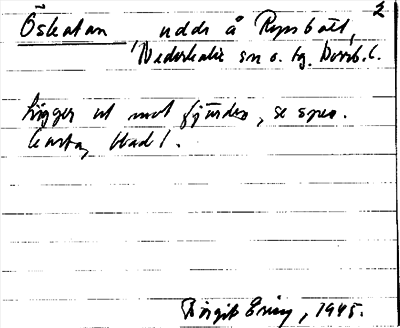 2
Öskatan, udde å Repsbält,
Nederkalix sn o. tg. Norrb. l.
Ligger ut mot fjärden, se spec.
karta, blad 1.
Birgit Eriny, 1945.